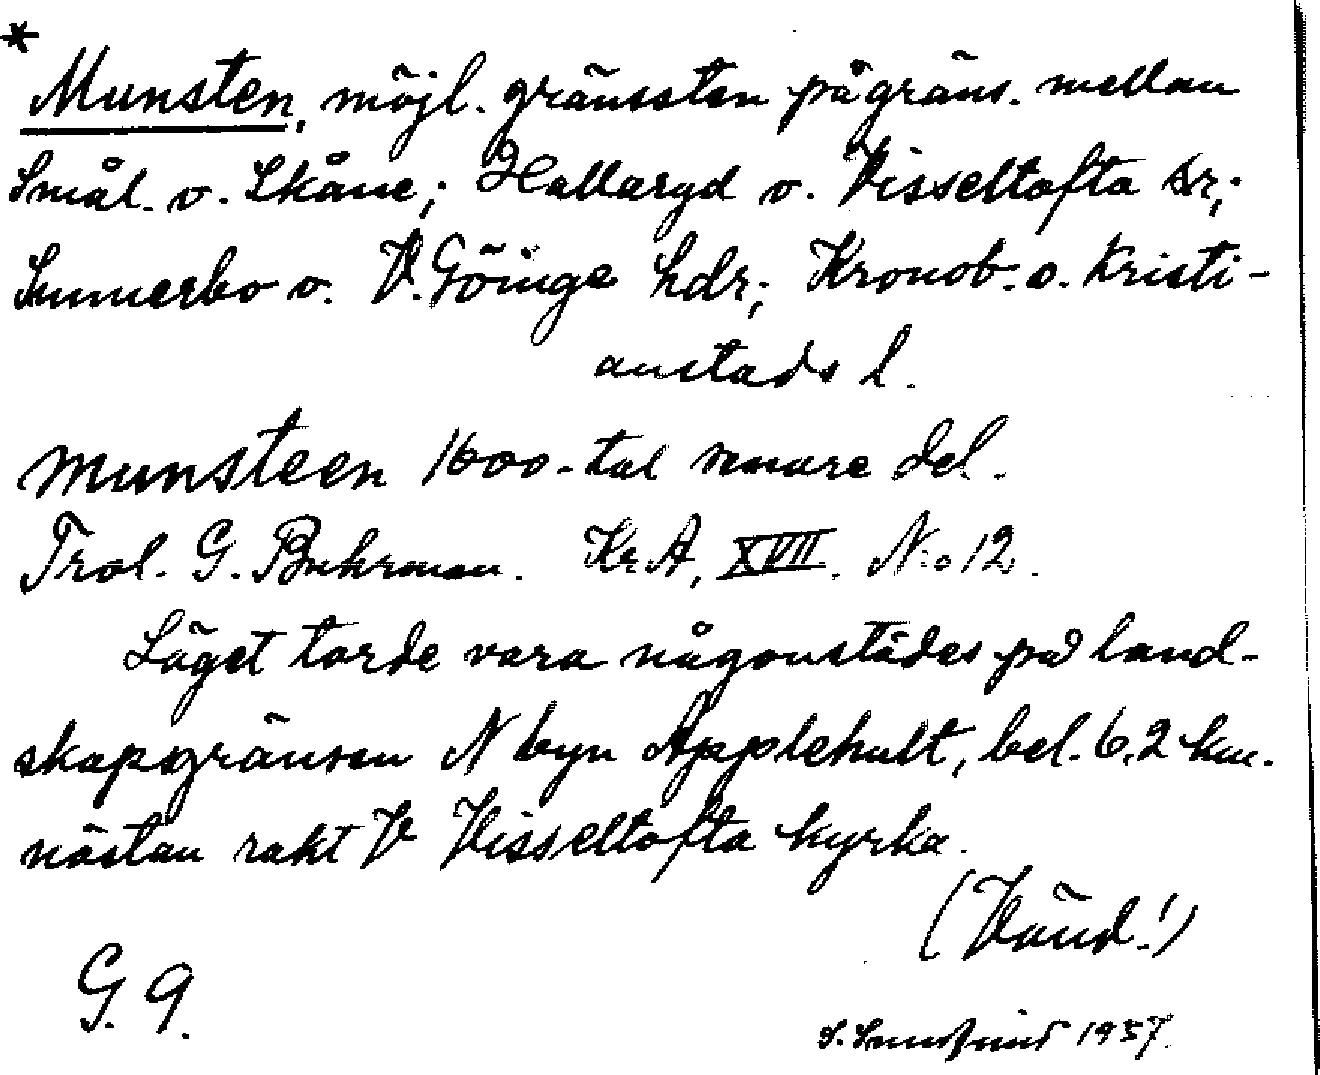 *
Munsten, möjl. gränssten på gräns. mellan
Smål. o. Skåne; Hallaryd o. Visseltofta sr;
Sunnerbo o. V. Göinge hdr; Kronob. o. Kristi-
anstads l.
Munsteen 1600-tal senare del.
Trol. G. Buhrman. KrA, XVII. N:o 12.
Läget torde vara någonstädes på land-
skapgränsen N byn Äpplehult, bel. 6,2 km.
nästan rakt V Visseltofta kyrka.
(Vänd!)
G. 9.
S. 1957.